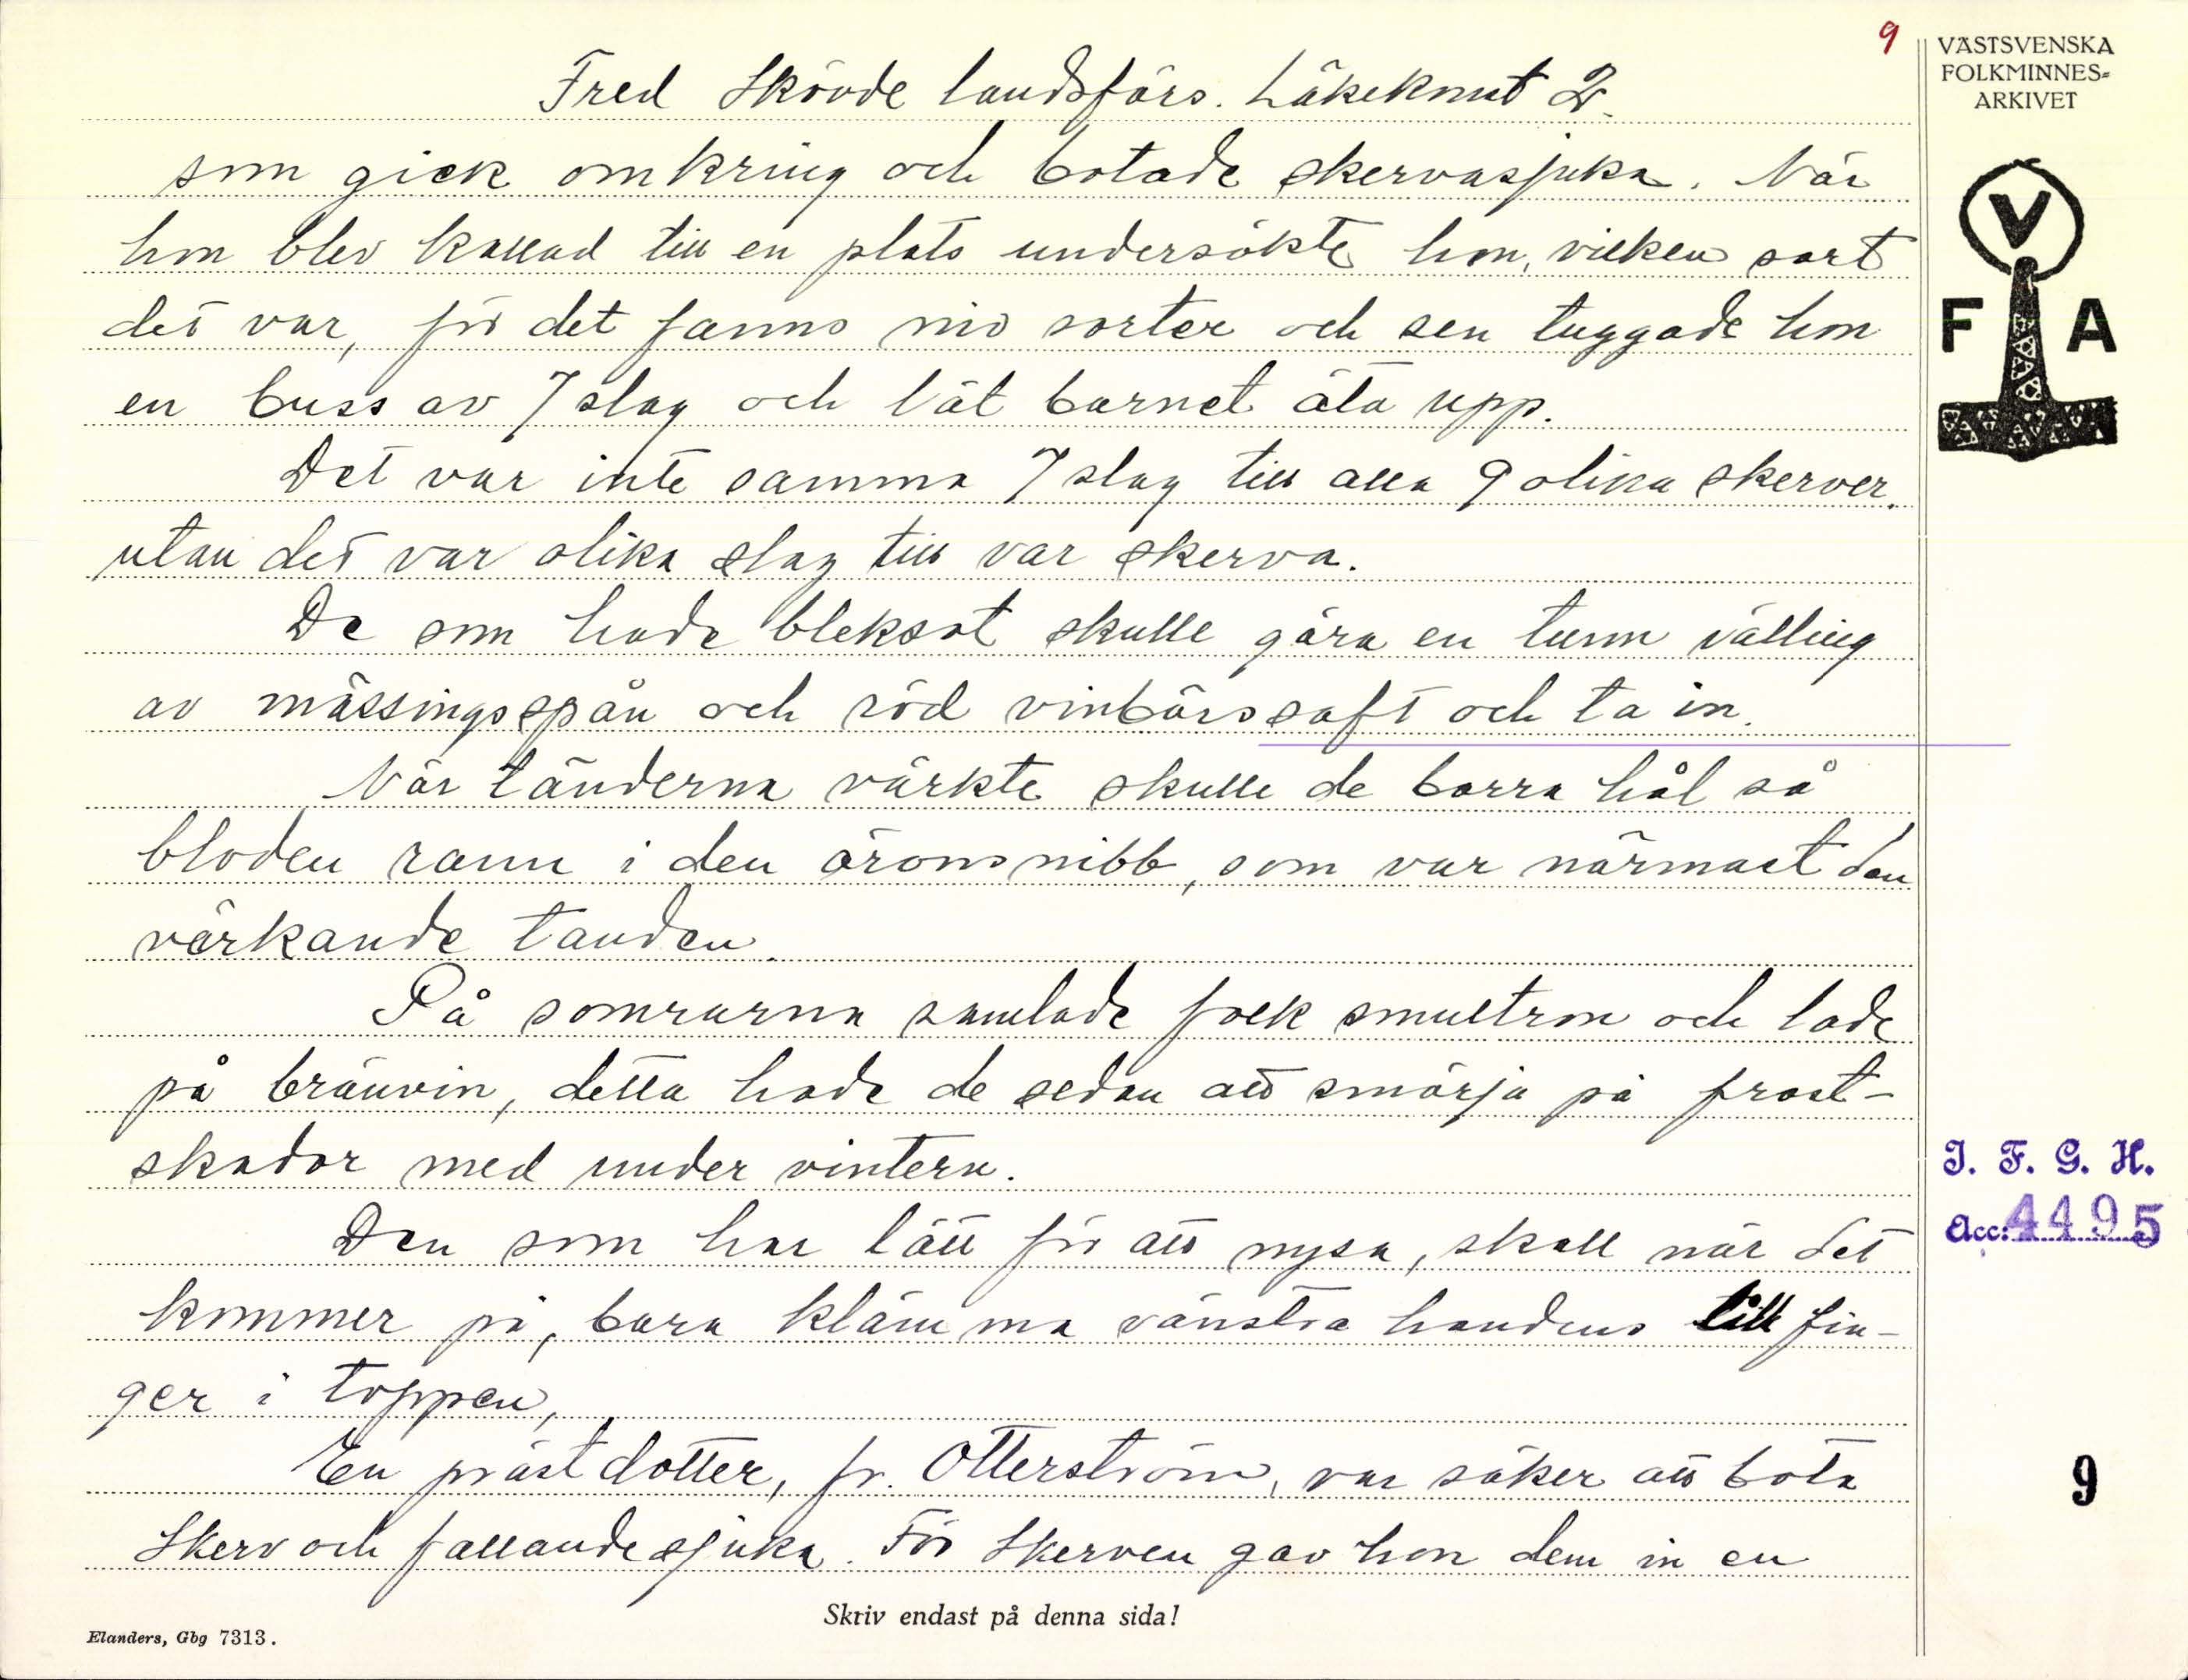 9
VÄSTSVENSKA
FOLKMINNES=
ARKIVET
V
F A
Fred Skövde landsförs. Läkeknut 2.
som gick omkring och botade skervasjuka. När
hon blev kallad till en plats undersökte hon, vilken sort
det var, för det fanns nio sorter och sen tuggade hon
en buss av 7 slag och lät barnet äta upp.
Det var inte samma 7 slag till alla 9 olika skerver.
utan det var olika slag till var skerva.
De som hade bleksot skulle göra en tunn välling
av mässingsspån och röd vinbärssaft och ta in.
När tänderna värkte skulle de borra hål så
bloden rann i den öronsnibb, som var närmast den
värkande tanden.
På somrarna samlade folk smultron och lade
på brännvin, detta hade de sedan att smörja på frost-
skador med under vintern.
Den som har lätt för att nysa, skall när det
kommer på, bara klämma vänstra handens lill fin-
ger i toppen,
En prästdotter, fr. Otterström, var säker att bota
Skerv och fallandesjuka. För Skerven gav hon dem in en
J. F. G. H.
Acc: 4495
9
Skriv endast på denna sida!
Elanders, Gbg 7313.